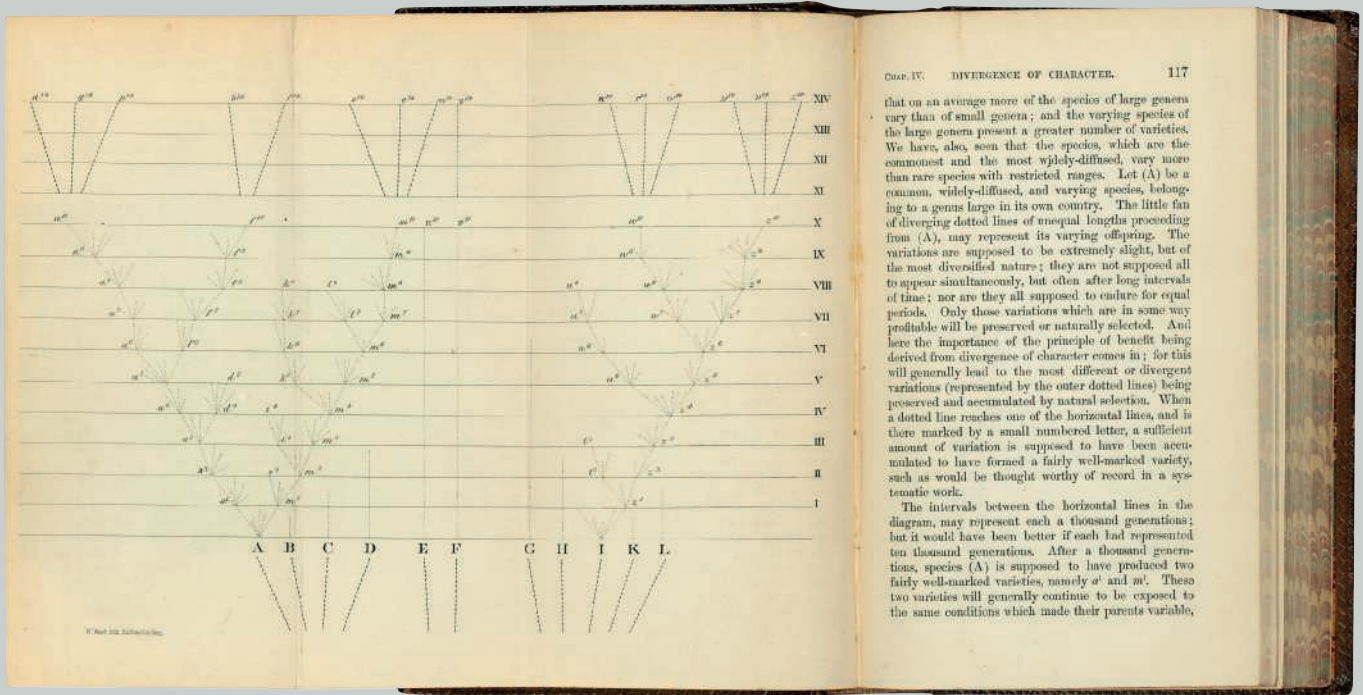 XIV
XIII
XII
XI
X
IX
VIII
VII
VI
V
IV
III
II
I
A B C D E F G H I K L
CHAP. IV. DIVERGENCE OF CHARACTER. 117
that on an average more of the species of large genera
vary than of small genera; and the varying species of
the large genera present a greater number of varieties.
We have, also, seen that the species, which are the
commonest and the most widely-diffused, vary more
than rare species with restricted ranges. Let (A) be a
common, widely-diffused, and varying species, belong-
ing to a genus large in its own country. The little fan
of diverging dotted lines of unequal lengths proceeding
from (A), may represent its varying offspring. The
variations are supposed to be extremely slight, but of
the most diversified nature; they are not supposed all
to appear simultaneously, but often after long intervals
of time; nor are they all supposed to endure for equal
periods. Only those variations which are in some way
profitable will be preserved or naturally selected. And
here the importance of the principle of benefit being
derived from divergence of character comes in; for this
will generally lead to the most different or divergent
variations (represented by the outer dotted lines) being
preserved and accumulated by natural selection. When
a dotted line reaches one of the horizontal lines, and is
there marked by a small numbered letter, a sufficient
amount of variation is supposed to have been accu-
mulated to have formed a fairly well-marked variety,
such as would be thought worthy of record in a sys-
tematic work.
The intervals between the horizontal lines in the
diagram, may represent each a thousand generations;
but it would have been better if each had represented
ten thousand generations. After a thousand genera-
tions, species (A) is supposed to have produced two
fairly well-marked varieties, namely a¹ and m¹. These
two varieties will generally continue to be exposed to
the same conditions which made their parents variable,